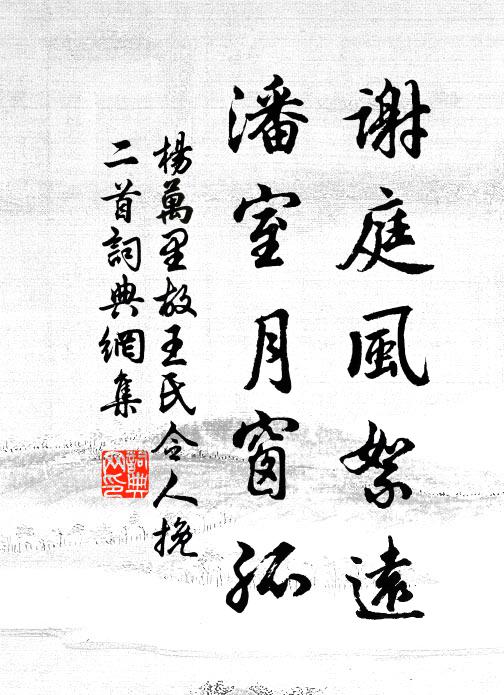 謝庭風絮遠
潘室月窗孤
楊萬里故王氏令人挽
二首詞典網集
詞典网印